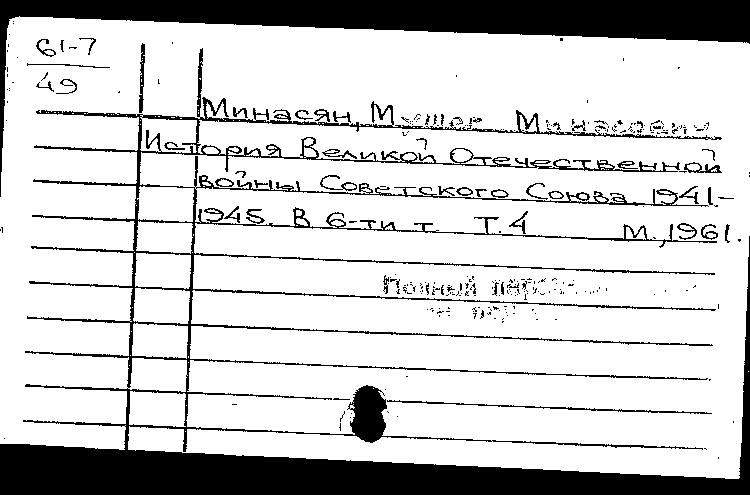 61-7
49
Минасян, Мушег Минасович
История Великой Отечественной
войны Советского Союза. 1941-
1945. В 6-ти т. Т.4 М.,1961.
Полный